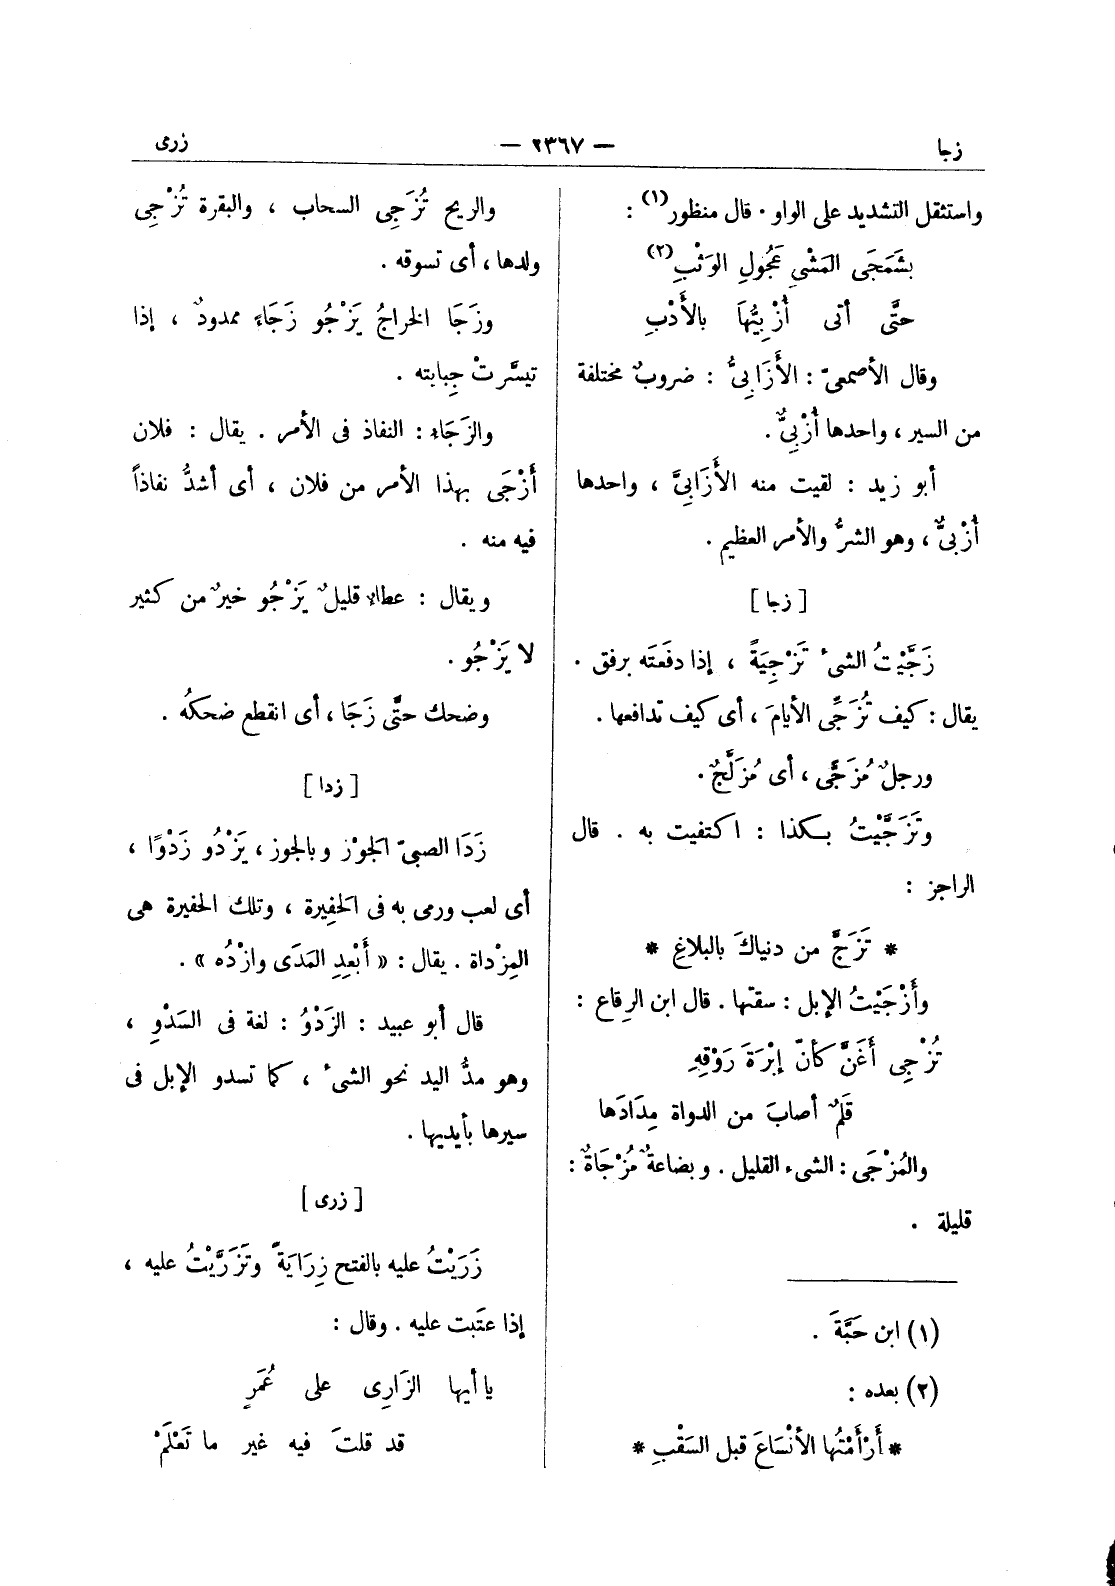 زجا — ٢٣٦٧ — زرى
واستثقل التشديد على الواو . قال منظور(١) :
بشَمَجَى المَشْىِ عَجُولِ الوَثْبِ(٢)
حتَّى أتى أُزْبِيُّهَا بالأَدْبِ
وقال الأصمعىّ : الأَزَابِىُّ : ضروبٌ مختلفة
من السير ، واحدها أُزْبِىٌّ .
أبو زيد : لقيت منه الأَزَابِىَّ ، واحدها
أُزْبِىٌّ ، وهو الشرُّ والأمر العظيم .
[ زجا ]
زَجَّيْتُ الشىءَ تَزْجِيَةً ، إذا دفَعتَه برفق .
يقال : كيف تُزَجِّى الأيامَ ، أى كيف تدافعها .
ورجلٌ مُزَجًّى ، أى مُزَلَّجٌ .
وتَزَجَّيْتُ بكذا : اكتفيت به . قال
الراجز :
* تَزَجَّ من دنياكَ بالبلاغِ *
وأَزْجَيْتُ الإبل : سقتها . قال ابن الرِقاع :
تُزْجِى أَغَنَّ كأنّ إبْرَةَ رَوْقِهِ
قَلَمٌ أصابَ من الدواة مِدَادَها
والمُزْجَى : الشىء القليل . وبضاعةٌ مُزْجَاةٌ :
قليلة .
(١) ابن حَبَّةَ .
(٢) بعده :
* أَرْأَمْتُها الأنْسَاعَ قبل السَقْبِ *
والريح تُزَجِى السحاب ، والبقرة تُزْجِى
ولدها ، أى تسوقه .
وزَجَا الخراجُ يَزْجُو زَجَاءً ممدودٌ ، إذا
تيسَّرتْ جِبايته .
والزَجَاءُ : النفاذ فى الأمر . يقال : فلان
أَزْجَى بهذا الأمر من فلان ، أى أشدُّ نفاذاً
فيه منه .
ويقال : عطاءٌ قليلٌ يَزْجُو خيرٌ من كثير
لا يَزْجُو .
وضحك حتَّى زَجَا ، أى انقطع ضحكهُ .
[ زدا ]
زَدَا الصبىّ الجوْز وبالجوز ، يَزْدُو زَدْوًا ،
أى لعب ورمى به فى الحفِيرة ، وتلك الحفيرة هى
المِزْداة . يقال : « أَبْعِدِ المَدَى وازْدُه » .
قال أبو عبيد : الزَدْوُ : لغة فى السَدْوِ ،
وهو مدُّ اليد نحو الشىء ، كما تسدو الإبل فى
سيرها بأيديها .
[ زرى ]
زَرَيْتُ عليه بالفتح زِرَايَةً وتَزَرَّيْتُ عليه ،
إذا عتَبت عليه . وقال :
يا أيها الزَارِى على عُمَرٍ
قد قلتَ فيه غير ما تَعْلَمْ